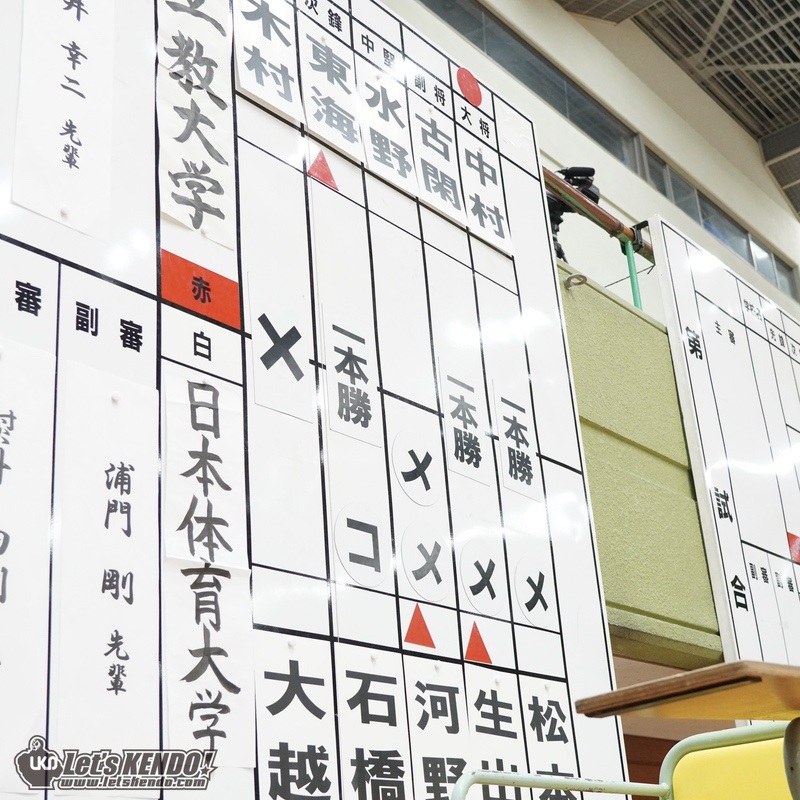 幸二 先輩
教大学
赤
白
日本体育大学
審
副審
浦門 剛 先輩
次鋒
中堅
副将
大将
木村
東海
水野
古閑
中村
一本勝
一本勝
一本勝
コ
メ
メ
メ
メ
大越
石橋
河野
生出
松本
第
試
合
主審
副審
LET'S KENDO!
www.letskendo.com